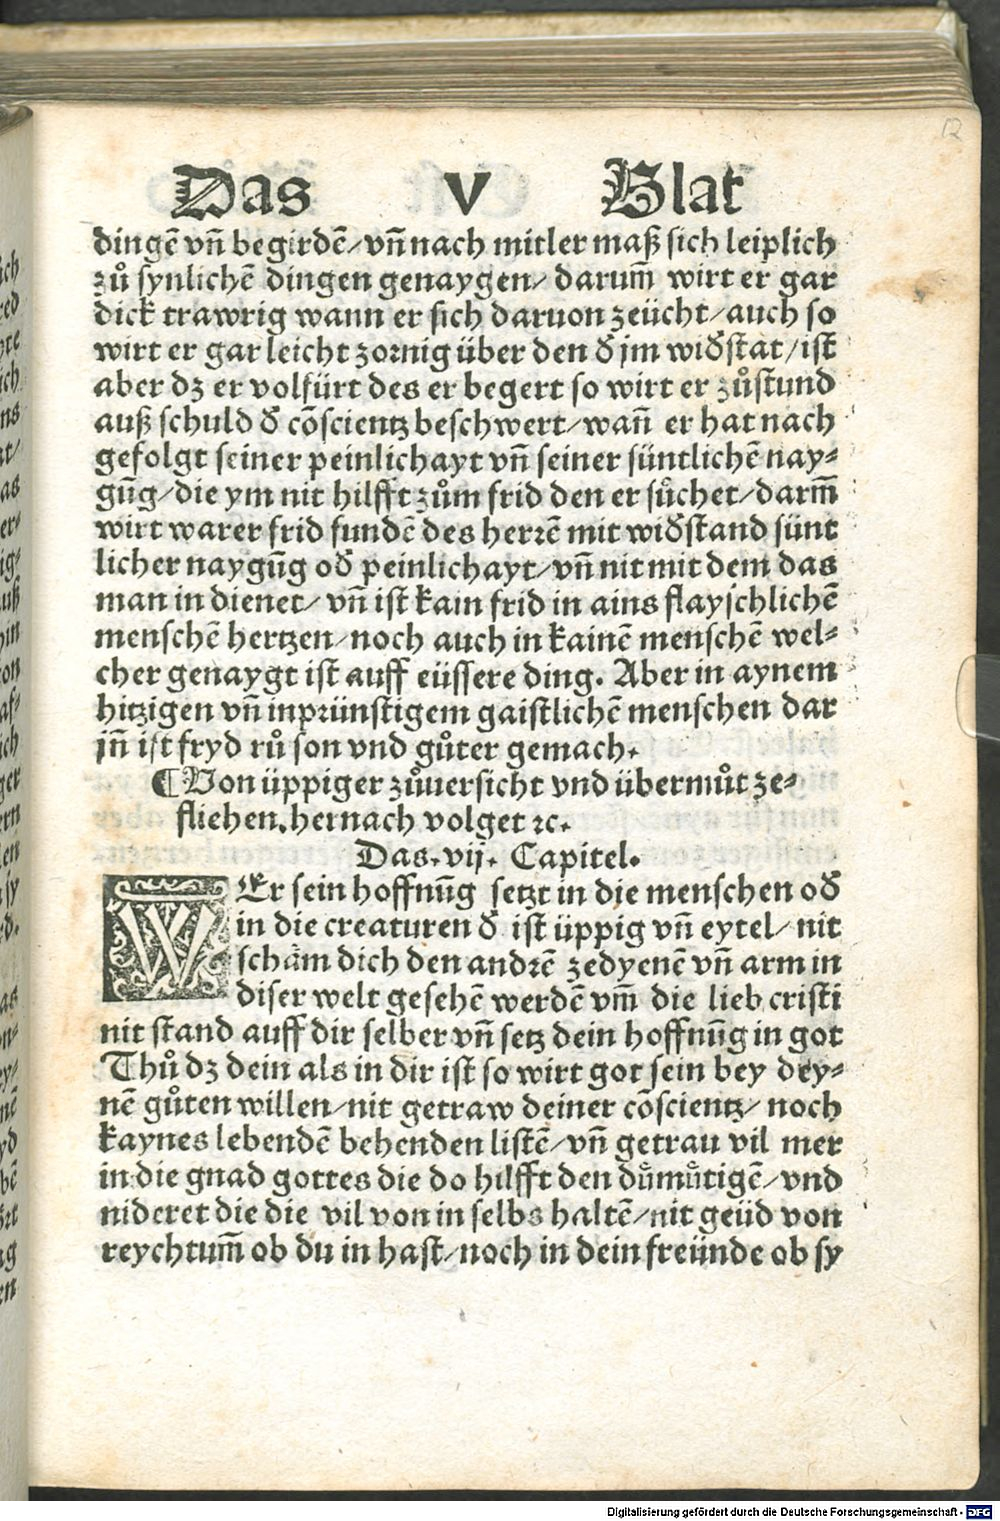 12
Das V Blat
dingē vñ begirdē/vñ nach mitler maß sich leiplich
zů synlichē dingen genaygen/ darum̄ wirt er gar
dick trawrig wann er sich daruon zeücht/auch so
wirt er gar leicht zornig über den d̄ jm wid̄stat/ist
aber dz er volfürt des er begert so wirt er zůstund
auß schuld d̄ cōscientz beschwert/wañ er hat nach
gefolgt seiner peinlichayt vñ seiner süntlichē nay⸗
gūg/die ym nit hilfft zům frid den er sůchet/darm̄
wirt warer frid fundē des herzē mit wid̄stand sünt
licher naygūg od̄ peinlichayt/vñ nit mit dem das
man in dienet/ vñ ist kain frid in ains flayschlichē
menschē hertzen/noch auch in kainē menschē wel⸗
cher genaygt ist auff eüssere ding. Aber in aynem
hitzigen vñ inprünstigem gaistlichē menschen dar
jñ ist fryd rů son vnd gůter gemach.
¶Von üppiger zůuersicht vnd übermůt ze⸗
fliehen.hernach volget ⁊c.
Das.vij. Capitel.
WEr sein hoffnūg setzt in die menschen od̄
in die creaturen d̄ ist üppig vñ eytel/ nit
schäm dich den andrē zedyenē vñ arm in
diser welt gesehē werdē vm̄ die lieb cristi
nit stand auff dir selber vñ setz dein hoffnūg in got
Thů dz dein als in dir ist so wirt got sein bey dey⸗
nē gůten willen/nit getraw deiner cōscientz/ noch
kaynes lebendē behenden listē/vñ getrau vil mer
in die gnad gottes die do hilfft den důmůtigē/vnd
nideret die die vil von in selbs haltē/nit geüd von
reychtum̄ ob du in hast/noch in dein freünde ob sy
Digitalisierung gefördert durch die Deutsche Forschungsgemeinschaft - DFG